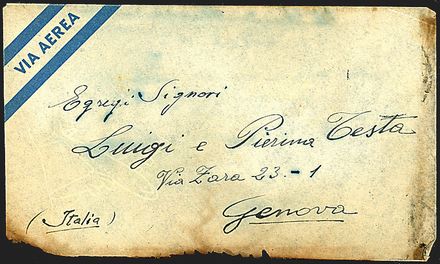 VIA AEREA
Egregi Signori
Luigi e Pierina Testa
Via Zara 23.-1
Genova
(Italia)